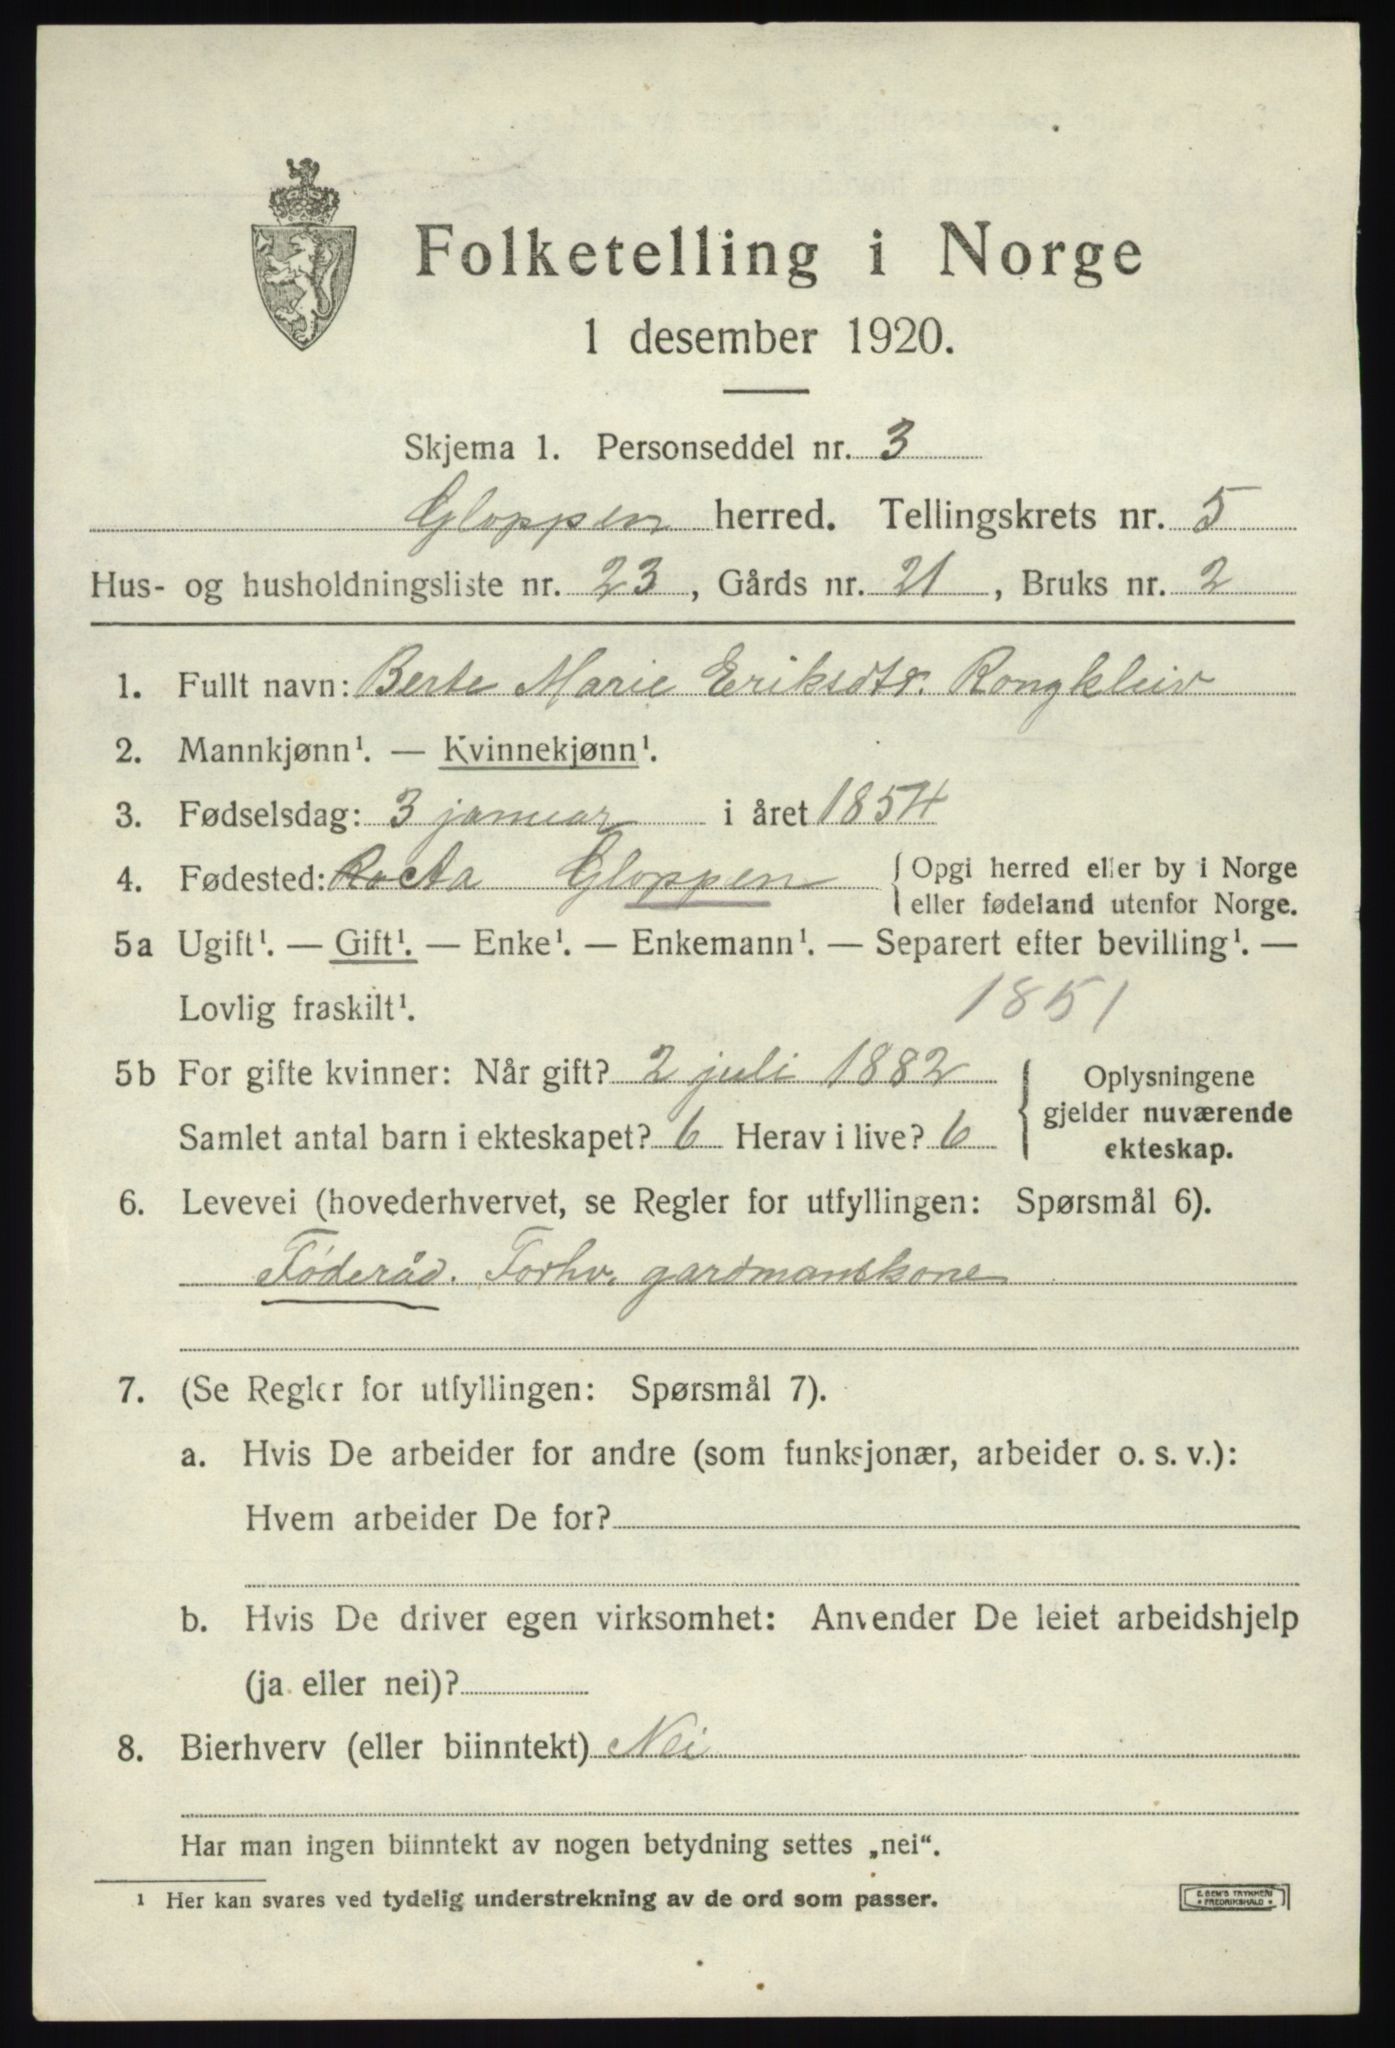 Folketelling i Norge
1 desember 1920.
Skjema 1. Personseddel nr. 3
Gloppen herred. Tellingskrets nr. 5
Hus- og husholdningsliste nr. 23, Gårds nr. 21, Bruks nr. 2
1. Fullt navn: Berte Marie Eriksdtr. Rongkleiv
2. Mannkjønn¹. — Kvinnekjønn¹.
3. Fødselsdag: 3 januar i året 1854
4. Fødested: Gloppen { Opgi herred eller by i Norge
eller fødeland utenfor Norge.
5a Ugift¹. — Gift¹. — Enke¹. — Enkemann¹. — Separert efter bevilling¹. —
Lovlig fraskilt¹. 1851
5b For gifte kvinner: Når gift? 2 juli 1882
Samlet antal barn i ekteskapet? 6 Herav i live? 6
{ Oplysningene
gjelder nuværende
ekteskap.
6. Levevei (hovederhvervet, se Regler for utfyllingen: Spørsmål 6).
Føderåd. Forhv. gardmanskone
7. (Se Regler for utfyllingen: Spørsmål 7).
a. Hvis De arbeider for andre (som funksjonær, arbeider o. s. v.):
Hvem arbeider De for?
b. Hvis De driver egen virksomhet: Anvender De leiet arbeidshjelp
(ja eller nei)?
8. Bierhverv (eller biinntekt) Nei
Har man ingen biinntekt av nogen betydning settes „nei“.
¹ Her kan svares ved tydelig understrekning av de ord som passer.
E. SEM'S TRYKKERI
• FREDRIKSHALD •